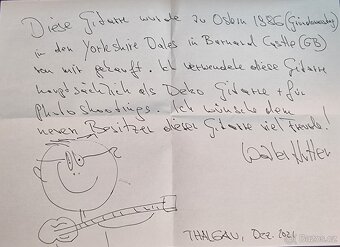 Diese Gitarre wurde zu Ostern 1986 (Gründonnerstag)
in den Yorkshire Dales in Barnard Castle (GB)
von mir gekauft. Ich verwendete diese Gitarre
hauptsächlich als Deko Gitarre + für
Photoshootings. Ich wünsche dem
neuen Besitzer dieser Gitarre viel Freude!
THALGAU, DEZ. 2021
Bazos.cz